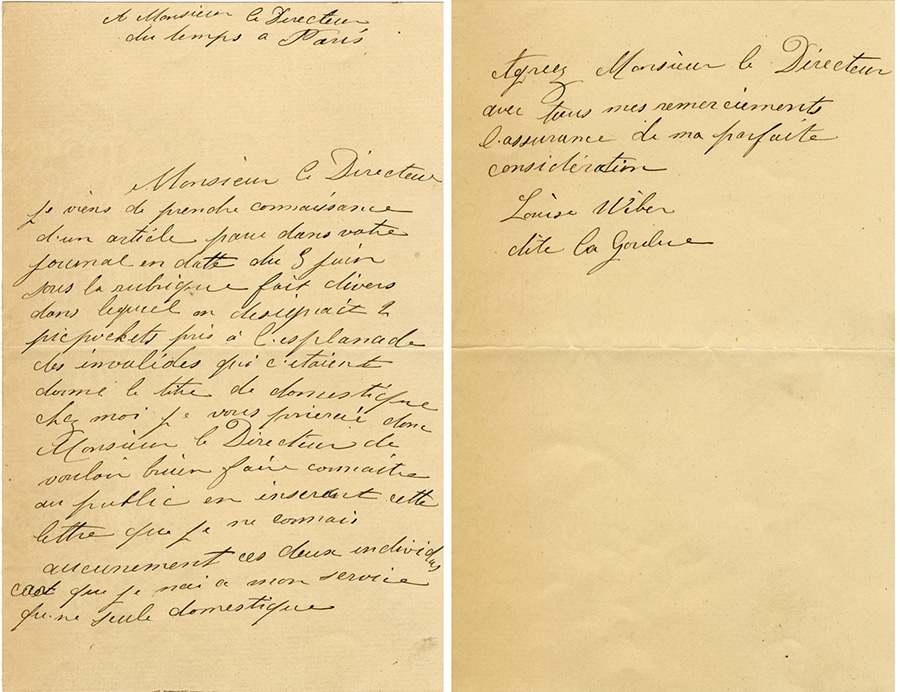 A Monsieur le Directeur
du temps a Paris
Monsieur le Directeur
je viens de prendre connaissance
d'un article paru dans votre
journal en datte du 8 juin
sous la rubrique fait divers
dans lequel on désignait 2
picpockets pris à l'esplanade
des invalides qui c'étaient
donné le titre de domestique
chez moi je vous prierai donc
Monsieur le Directeur de
vouloir buien faire connaitre
au public en inserant cette
lettre que je ne connais
aucunement ces deux individus
et que je nai a mon service
qu'une seule domestique
Agréez Monsieur le Directeur
avec tous mes remerciements
l'assurance de ma parfaite
considération
Louise Wéber
dite la Goulue